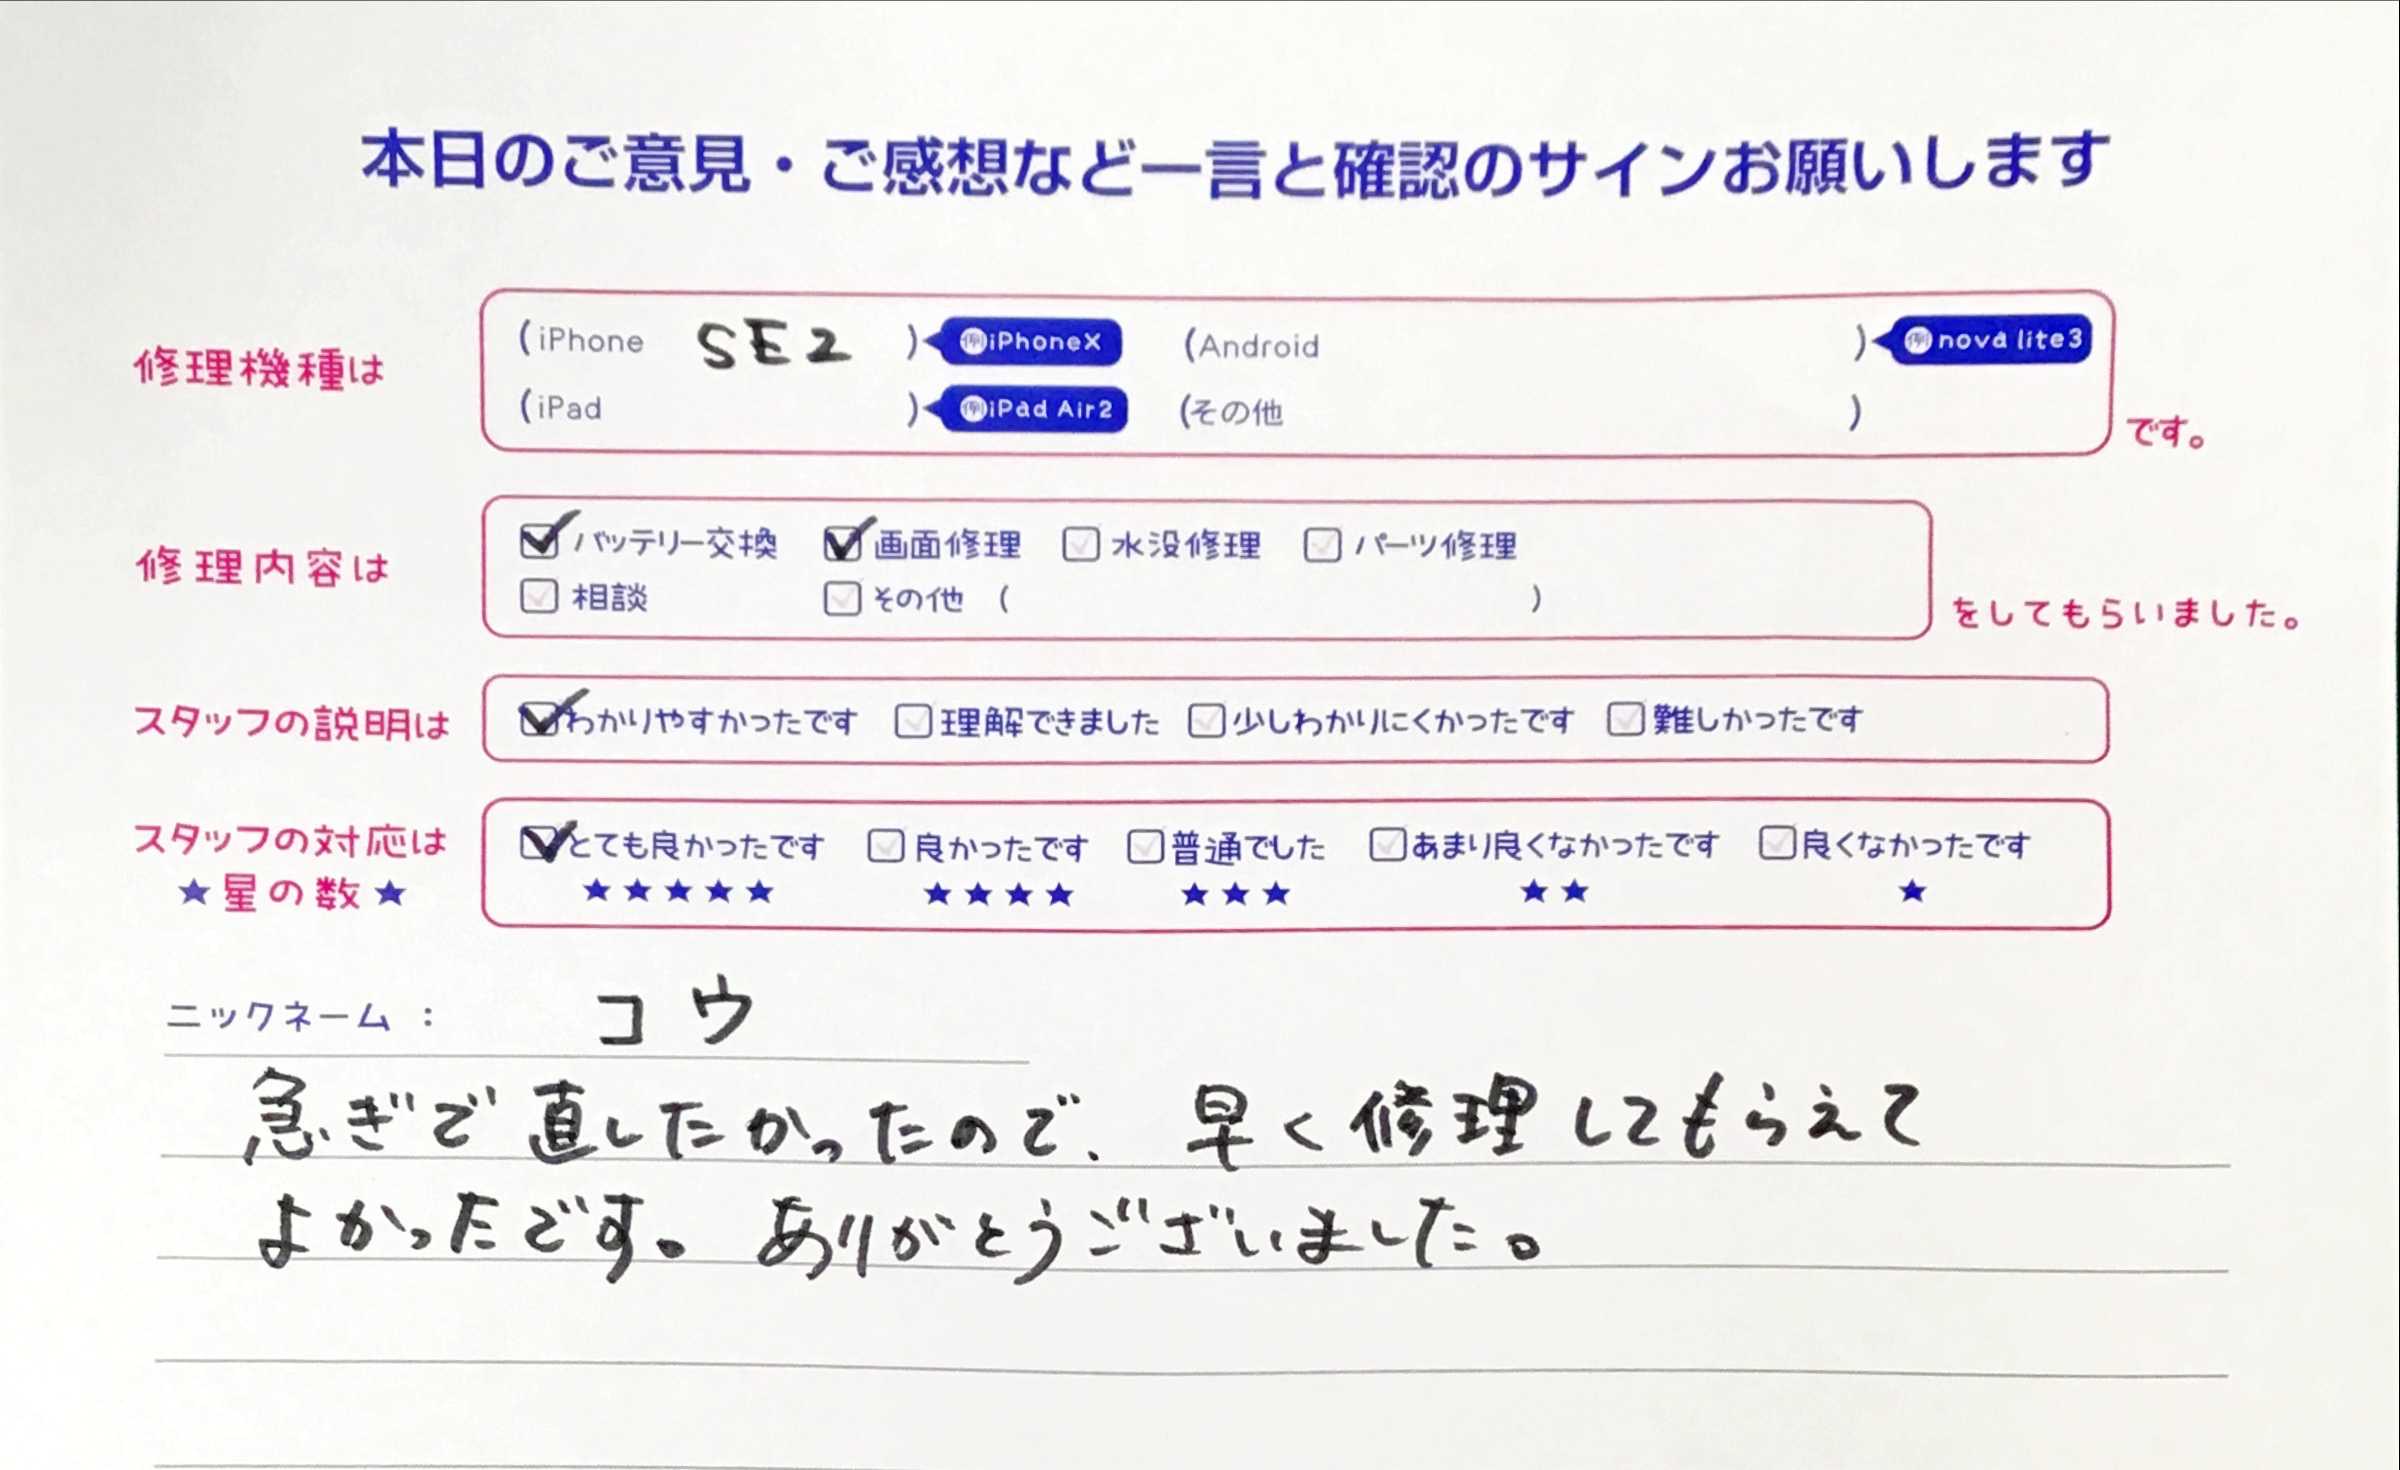 本日のご意見・ご感想など一言と確認のサインお願いします
修理機種は
(iPhone SE2 ) 例iPhoneX (Android ) 例nova lite3
(iPad ) 例iPad Air2 (その他 )
です。
修理内容は
バッテリー交換 画面修理 水没修理 パーツ修理
相談 その他 ( )
をしてもらいました。
スタッフの説明は
わかりやすかったです 理解できました 少しわかりにくかったです 難しかったです
スタッフの対応は
★星の数★
とても良かったです 良かったです 普通でした あまり良くなかったです 良くなかったです
★★★★★ ★★★★ ★★★ ★★ ★
ニックネーム : コウ
急ぎで直したかったので、早く修理してもらえて
よかったです。ありがとうございました。